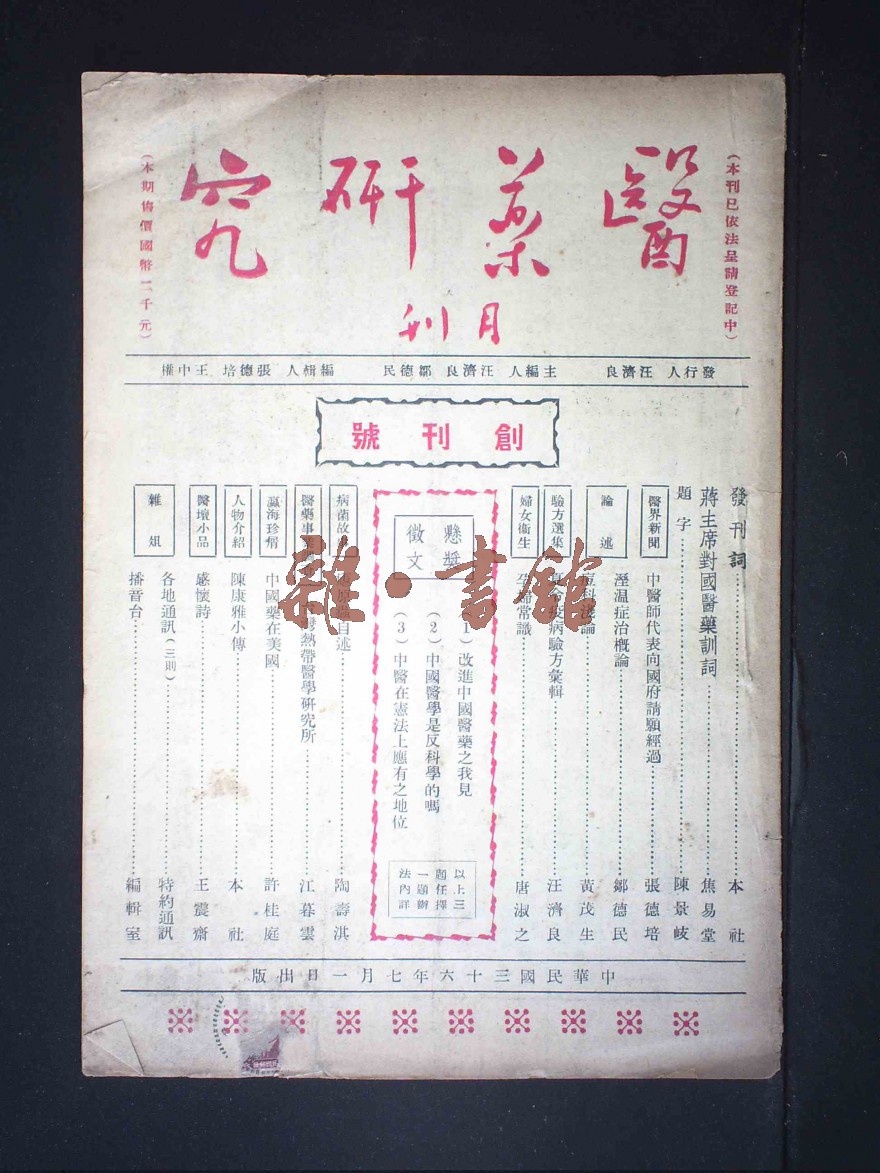 醫药研究
月刊
（本刊已依法呈請登記中）
（本期售價國幣二千元）
發行人 汪濟良 主編人 汪濟良 鄒德民 編輯人 張德培 王中權
創刊號
發刊詞 本社
蔣主席對國醫藥訓詞 焦易堂
題字 陳景岐
醫界新聞 中醫師代表向國府請願經過 張德培
論述 溼温症治概論 鄒德民
痘科淺論 黃茂生
驗方選集 疫病驗方彙輯 汪濟良
婦女衞生 孕婦常識 唐淑之
懸獎徵文
（1）改進中國醫藥之我見
（2）中國醫學是反科學的嗎
（3）中醫在憲法上應有之地位
以上三題任擇一題辦法內詳
病菌故事 自述 陶壽淇
醫藥事業 台灣熱帶醫學研究所 江暮雲
瀛海珍聞 中國藥在美國 許桂庭
人物介紹 陳康雅小傳 本社
醫壇小品 感懷詩 王震齋
雜俎 各地通訊（三則） 特約通訊
播音台 編輯室
中華民國三十六年七月一日出版
雜·書館